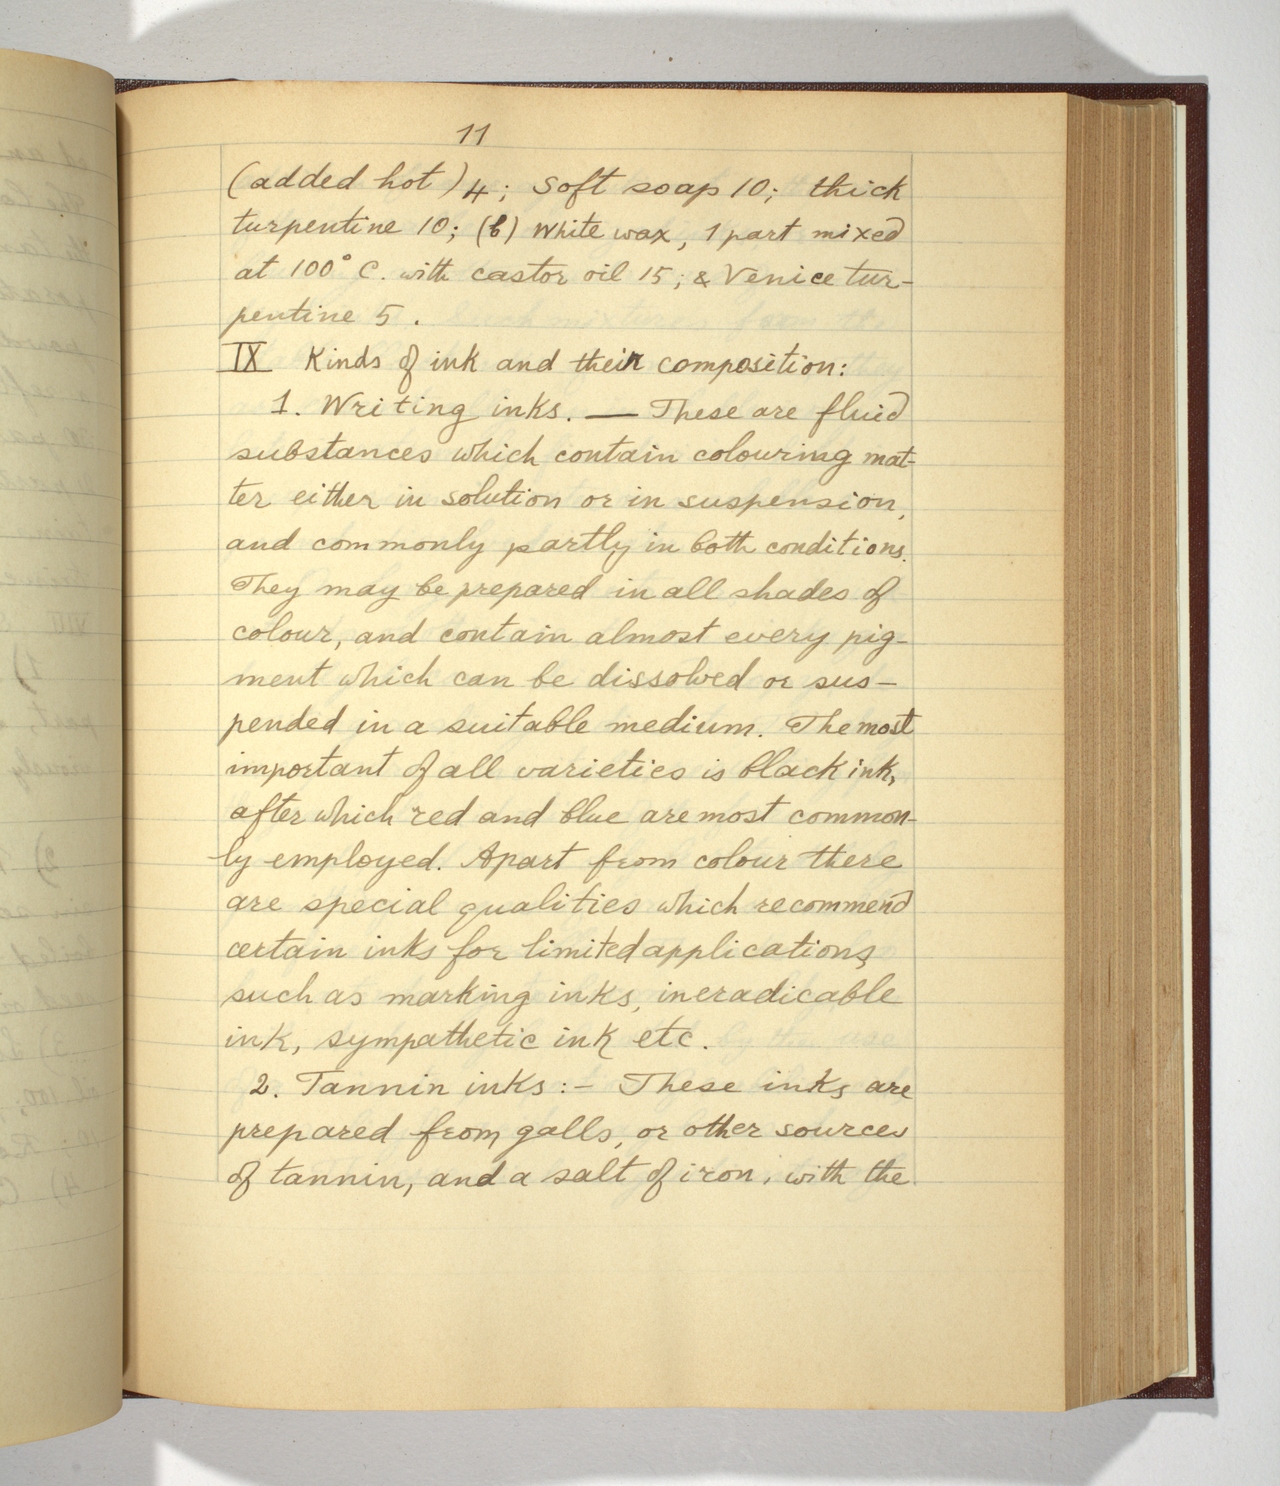 11
(added hot) 4; Soft soap 10; thick
turpentine 10; (b) White wax, 1 part mixed
at 100° C. with castor oil 15; & Venice tur-
pentine 5.
IX Kinds of ink and their composition:
1. Writing inks. — These are fluid
substances which contain colouring mat-
ter either in solution or in suspension,
and commonly partly in both conditions.
They may be prepared in all shades of
colour, and contain almost every pig-
ment which can be dissolved or sus-
pended in a suitable medium. The most
important of all varieties is black ink,
after which red and blue are most common-
ly employed. Apart from colour there
are special qualities which recommend
certain inks for limited applications,
such as marking inks, ineradicable
ink, sympathetic ink etc.
2. Tannin inks :- These inks are
prepared from galls, or other sources
of tannin, and a salt of iron, with the